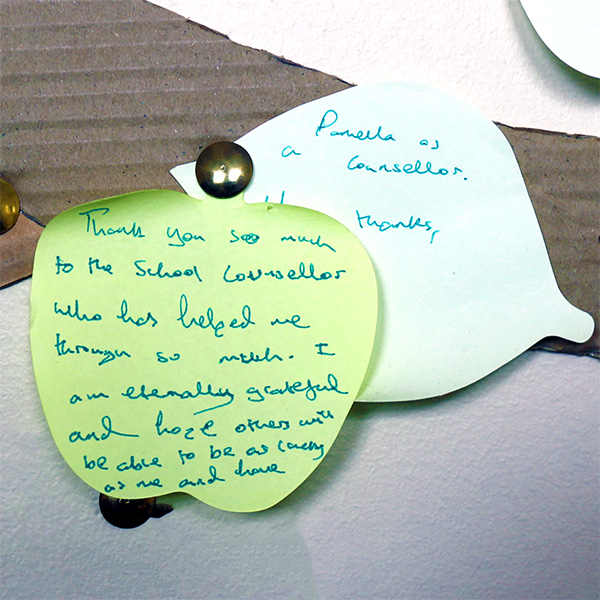 Thank you soo much
to the School Counsellor
who has helped me
through so much. I
am eternally grateful
and hope others will
be able to be as lucky
as me and have
Pamella as
a Counsellor.
thanks,